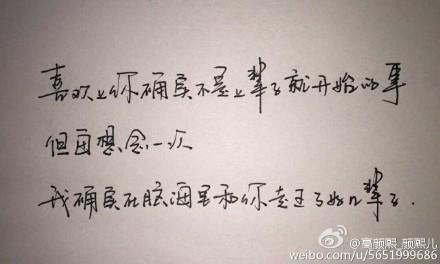 喜欢上你确实不是上辈子就开始的事
但因想念一次
我确实在脑海里和你走过了好几辈子.
@高颜熙_颜熙儿
weibo.com/u/5651999686